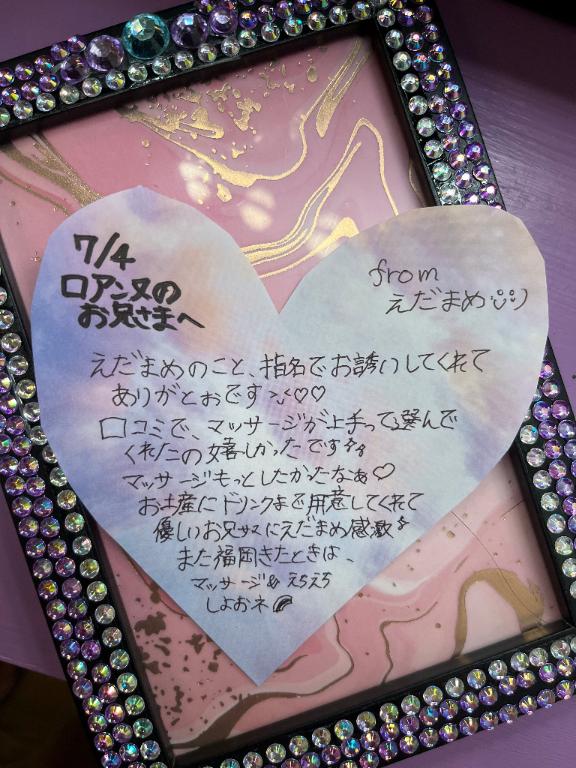 7/4
ロアンヌの
お兄さまへ
from
えだまめ
えだまめのこと、指名でお誘いしてくれて
ありがとぉです>.<♡♡
口コミで、マッサージが上手って選んで
くれたの嬉しかったです
マッサージもっとしたかたなぁ♡
お土産にドリンクまで用意してくれて
優しいお兄サマにえだまめ感激
また福岡きたときは、
マッサージ& えちえち
しよおネ